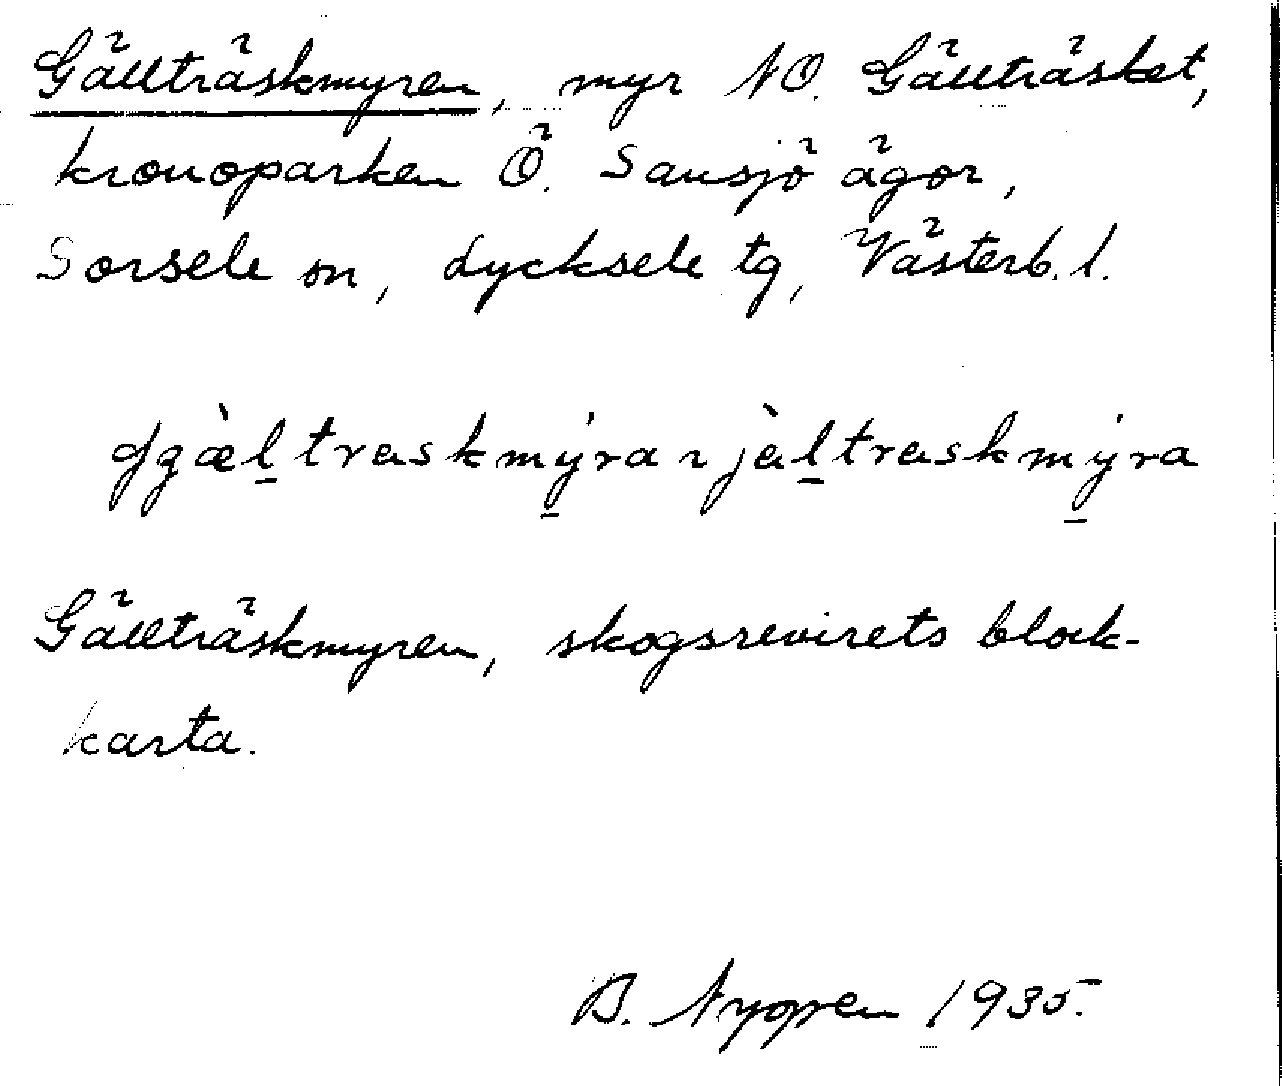 Gällträskmyren, myr NO. Gällträsket,
kronoparken Ö. Sansjö ägor,
Sorsele sn, Lycksele tg, Västerb. l.
traskmýra traskmýra
Gällträskmyren, skogsrevirets block-
karta.
B. Nygren 1935.